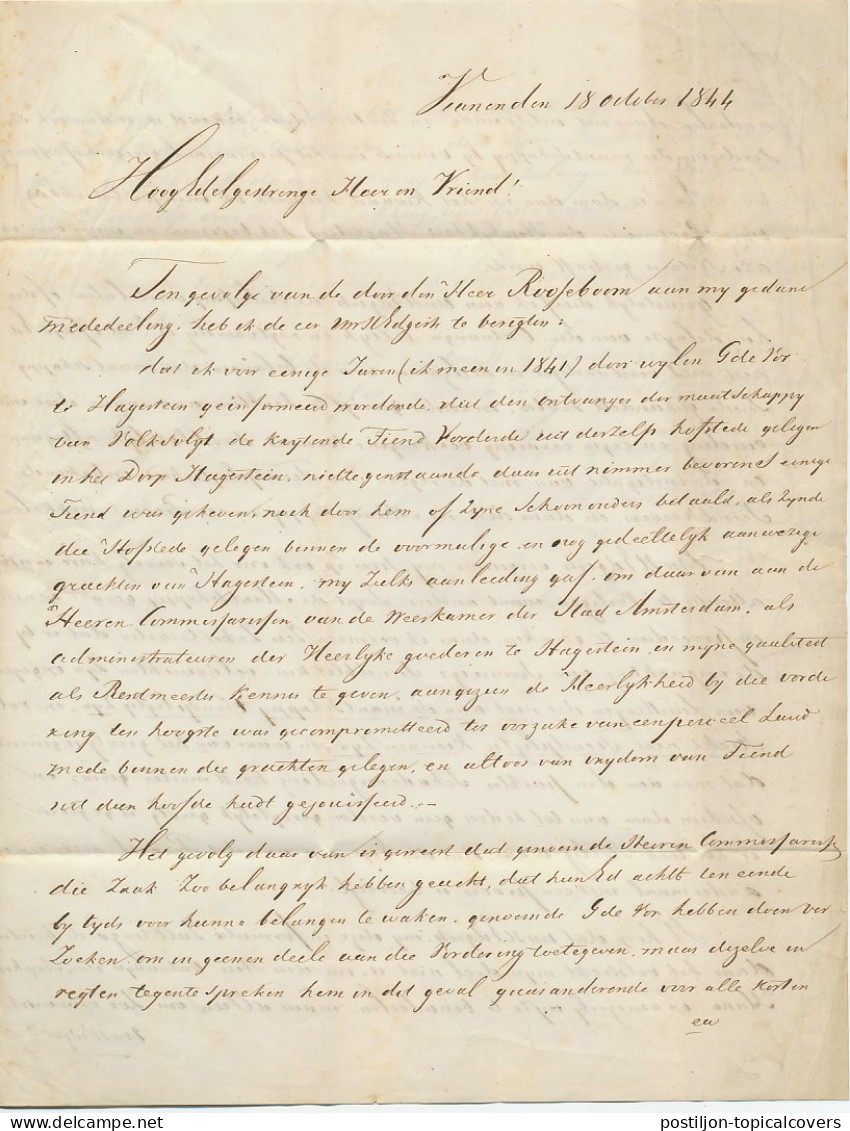 Vianen den 18 october 1844
HoogEdelgestrenge Heer en Vriend!
Ten gevolge van de door den Heer Rooseboom aan my gedane
mededeeling, heb ik de eer UwHEdgestr te berigten:
dat ik vóór eenige Jaren (ik meen in 1841) door wylen G de Vor
te Hagestein geinformeerd wordende, dat den ontvanger der maatschappy
van Volksvlyt de krytende Tiend Vorderde uit deszelfs hofstede gelegen
in het Dorp Hagestein, niettegenstaande daar uit nimmer bevorens eenige
Tiend was geheven, noch door hem of Zyne Schoonouders betaald, als Zynde
die Hofstede gelegen binnen de voormalige en nog gedeeltelyk aanwezige
grachten van Hagestein, my Zulks aanleiding gaf, om daar van aan de
Heeren Commissarissen van de Weeskamer der Stad Amsterdam, als
administrateuren der Heerlyke goederen te Hagestein, en myne qualiteit
als Rentmeester kennis te geven, aangezien de Heerlykheid by die vorde
ring ten hoogste was gecompromitteerd ter oorzake van een perceel Land
mede binnen die grachten gelegen, en altoos van vrydom van Tiend
uit dien hoofde hadt gejouisseerd. –
Het gevolg daar van is geweest dat genoemde Heeren Commissarisse
die Zaak Zoo belangryk hebben geacht, dat hun Ed achtt ten eende
by tyds voor hunne belangen te waken, genoemde G de Vor hebben doen ver
Zoeken, om in geenen deele aan die Vordering toetegeven, maar dezelve in
regten tegente spreken hem in dit geval guaranderende voor alle kosten
en
postiljon-topicalcovers